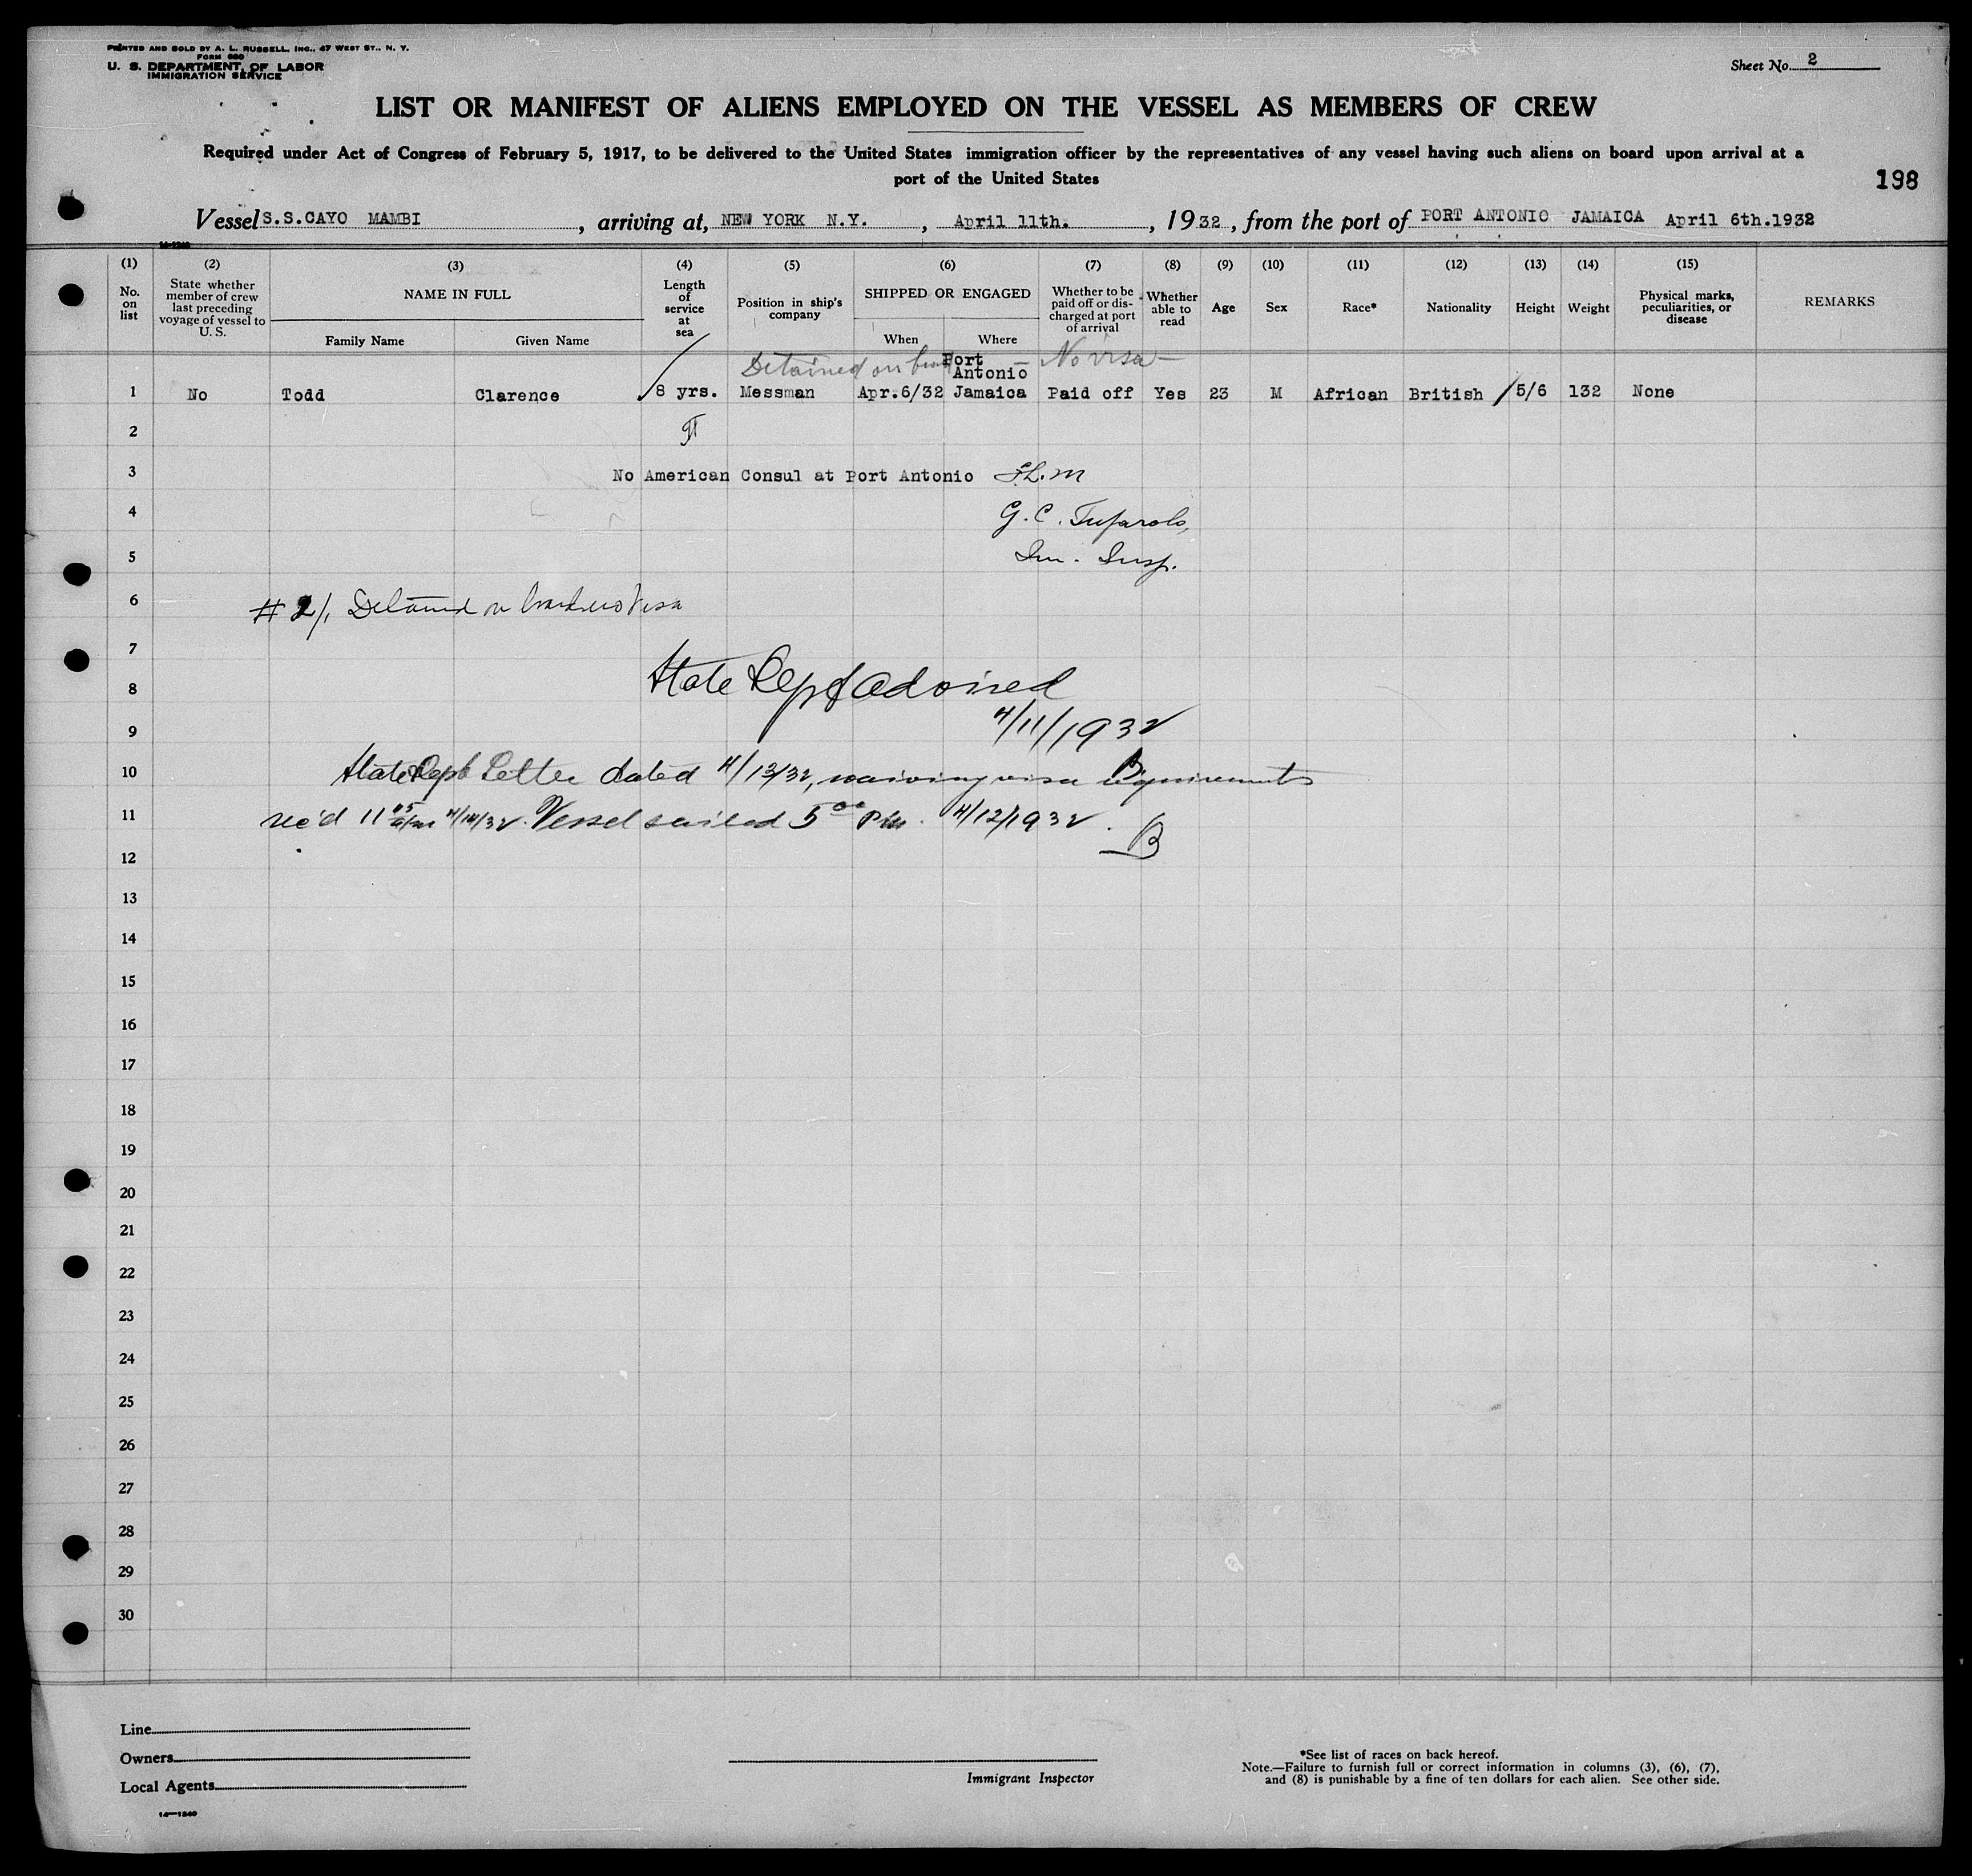 PRINTED AND SOLD BY A. L. RUSSELL, INC., 47 WEST ST., N. Y.
FORM 680
U. S. DEPARTMENT OF LABOR
IMMIGRATION SERVICE
Sheet No. 2
LIST OR MANIFEST OF ALIENS EMPLOYED ON THE VESSEL AS MEMBERS OF CREW
Required under Act of Congress of February 5, 1917, to be delivered to the United States immigration officer by the representatives of any vessel having such aliens on board upon arrival at a
port of the United States
198
Vessel S.S.CAYO MAMBI, arriving at, NEW YORK N.Y., April 11th., 1932, from the port of PORT ANTONIO JAMAICA April 6th.1932
14-1240
(1) (2) (3) (4) (5) (6) (7) (8) (9) (10) (11) (12) (13) (14) (15)
No. on list
State whether member of crew last preceding voyage of vessel to U. S.
NAME IN FULL
Family Name Given Name
Length of service at sea
Position in ship's company
SHIPPED OR ENGAGED
When Where
Whether to be paid off or discharged at port of arrival
Whether able to read
Age
Sex
Race*
Nationality
Height
Weight
Physical marks, peculiarities, or disease
REMARKS
Detained on board — No visa —
Port
Antonio
1 No Todd Clarence 8 yrs. Messman Apr.6/32 Jamaica Paid off Yes 23 M African British 5/6 132 None
2
3 No American Consul at Port Antonio
4 G. C.
5 Im. Insp.
6 Detained on board no visa
7
8 State Dept Advised
9 4/11/1932
10 State Dept Letter dated 4/13/32, waiving visa requirements
11 rec'd 11 05 a/m 4/14/32. Vessel sailed 5 00 P.M. 4/12/1932. B
12
13
14
15
16
17
18
19
20
21
22
23
24
25
26
27
28
29
30
Line
Owners
Local Agents
14—1240
Immigrant Inspector
*See list of races on back hereof.
Note.—Failure to furnish full or correct information in columns (3), (6), (7),
and (8) is punishable by a fine of ten dollars for each alien. See other side.